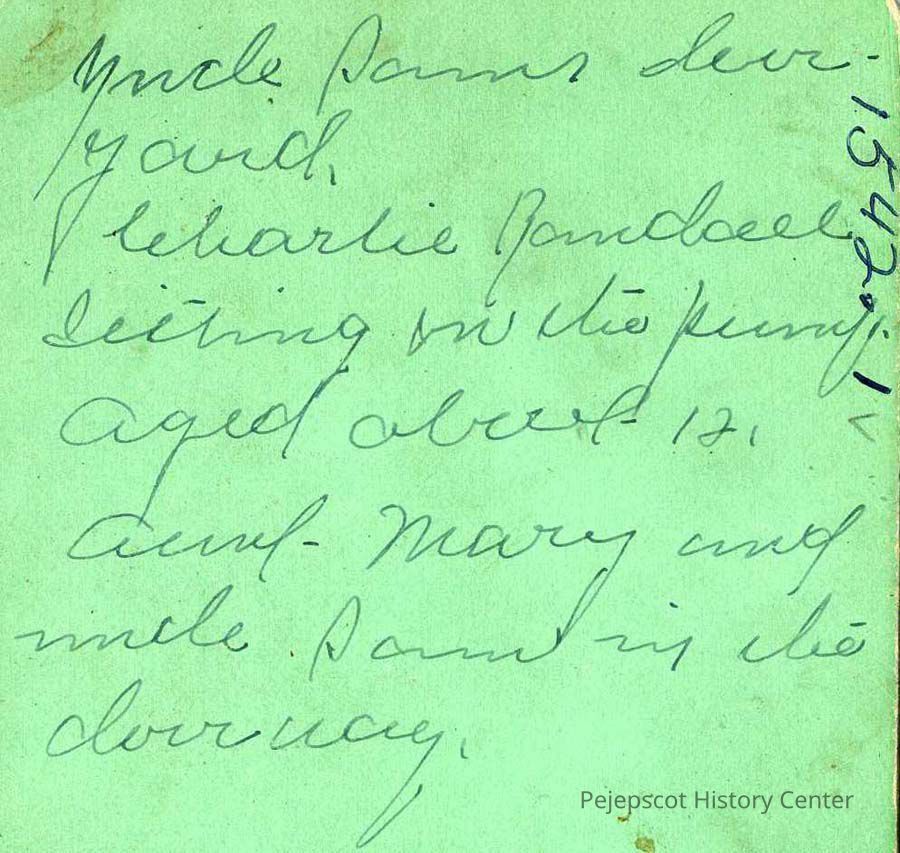 Uncle Sam's door-
yard.
Charlie Randall
sitting on the pump
aged about 12.
Aunt Mary and
uncle Sam in the
doorway.
1542.1
Pejepscot History Center